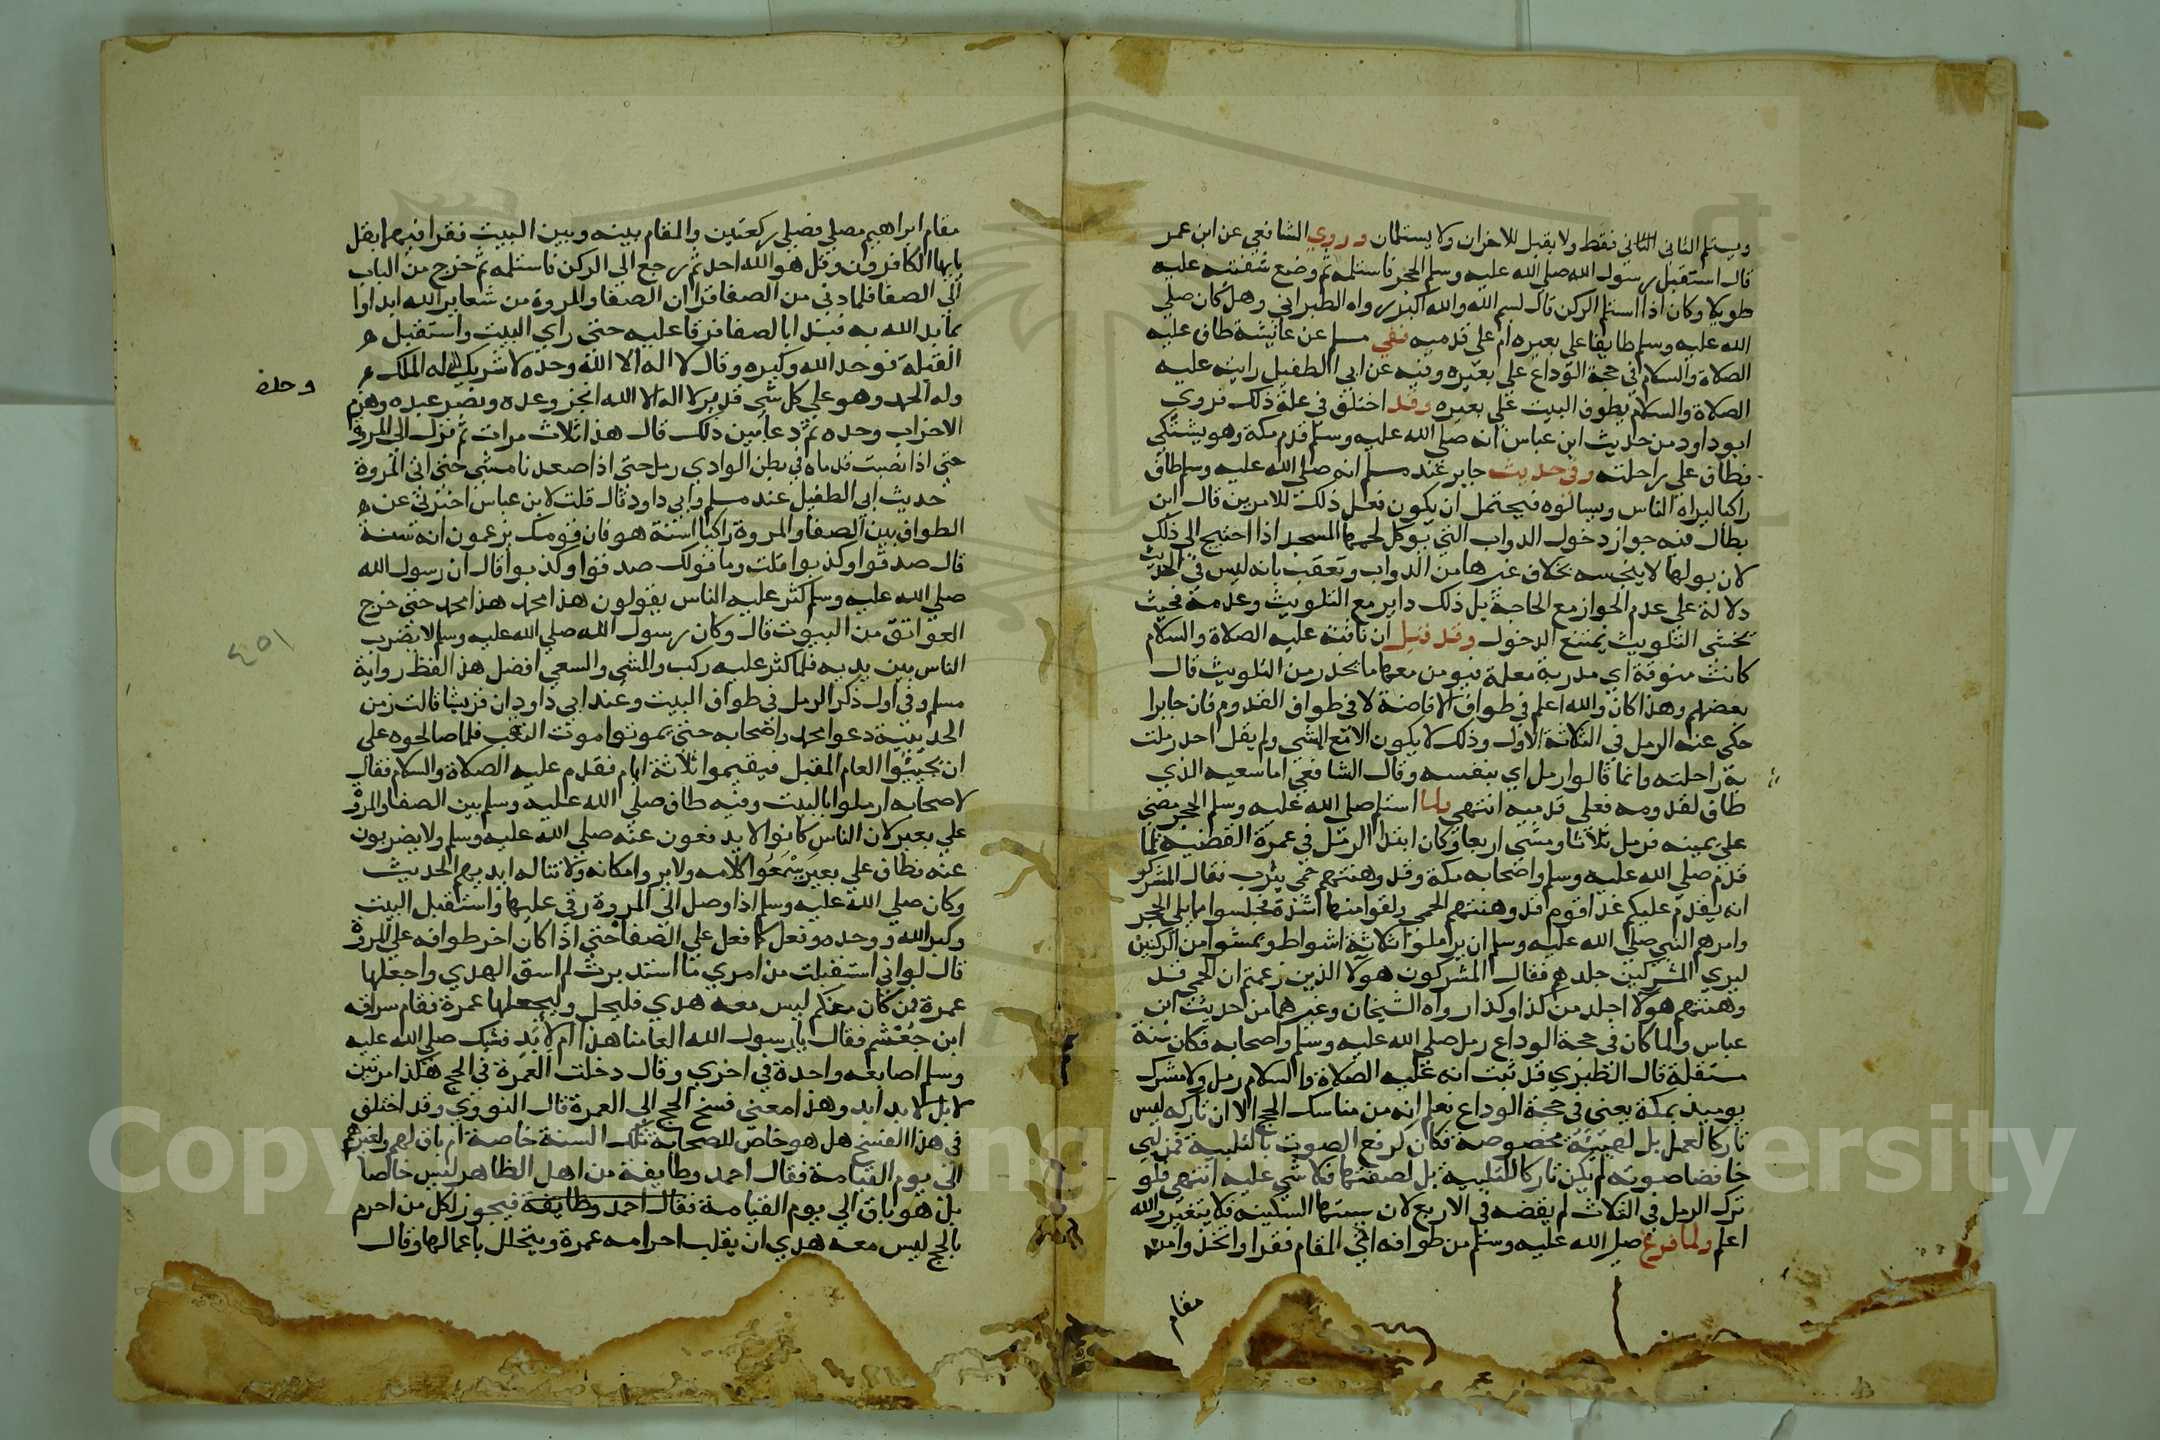 ويستلم الثاني الثاني فقط ولا يقبل للاخران ولا يستلمان وروي الشافعي عن ابن عمر
قال استقبل رسول الله صلي الله عليه وسلم الحجر فاستلمه ثم وضع شفته عليه
طويلا وكان اذا استلم الركن قال بسم الله والله اكبر رواه الطبراني وهل كان صلي
الله عليه وسلم طايفا علي بعيره ام علي قدميه نفي مسلم عن عايشة طاف عليه
الصلاة والسلام في حجة الوداع علي بعيره وفيه عن ابي الطفيل رايته عليه
الصلاة والسلام يطوف البيت علي بعيره وقد اختلف في علة ذلك فروي
ابو داود من حديث ابن عباس انه صلي الله عليه وسلم قدم مكة وهو يشتكي
فطاف علي راحلته وفي حديث جابر عند مسلم انه صلي الله عليه وسلم طاف
راكبا ليراه الناس ويسالوه فيحتمل ان يكون فعل ذلك للامرين قال ابن
بطال فيه جواز دخول الدواب التي يوكل لحمها المسجد اذا احتيج الي ذلك
لان بولها لا ينجسه بخلاف غيرها من الدواب وتعقب بانه ليس في الحديث
دلالة علي عدم الجواز مع الحاجة بل ذلك داير مع التلويث وعدمه فحيث
يخشي التلويث يمتنع الدخول وقد قيل ان ناقته عليه الصلاة والسلام
كانت منوقة اي مدربة معلمة فيومن معها ما يحذر من التلويث قال
بعضهم وهذا كان والله اعلم في طواف الافاضة لا في طواف القدوم فان جابرا
حكي عنه الرمل في الثلاثة الاول وذلك لا يكون الا مع المشي ولم يقل احد رملت
به راحلته وانما قالوا رمل اي بنفسه وقال الشافعي اما سعيه الذي
طاف لقدومه فعلي قدميه انتهي ولما استلم صلي الله عليه وسلم الحجر مضي
علي يمينه فرمل ثلاثا ومشي اربعا وكان ابتدا الرمل في عمرة القضية لما
قدم صلي الله عليه وسلم واصحابه مكة وقد وهنتهم حمي يثرب فقال المشركو
انه يقدم عليكم غدا قوم قد وهنتهم الحمي ولقوا منها شدة فجلسوا مما يلي الحجر
وامرهم النبي صلي الله عليه وسلم ان يرملوا ثلاثة اشواط ويمشوا من الركنين
ليري المشركين جلدهم فقال المشركون هولا الذين زعمتم ان الحمي قد
وهنتهم هولا اجلد من كذا وكذا رواه الشيخان وغيرهما من حديث ابن
عباس ولما كان في حجة الوداع رمل صلي الله عليه وسلم واصحابه فكان سنة
مستقلة قال الطبري قد ثبت انه عليه الصلاة والسلام رمل ولا مشرك
يوميذ بمكة يعني في حجة الوداع فعلم انه من مناسك الحج الا ان تاركه ليس
تاركا لعمل بل لهيئة مخصوصة فكان كرفع الصوت بالتلبية فمن لبي
خافضا صوته لم يكن تاركا للتلبية بل لصفتها فلا شي عليه انتهي فلو
ترك الرمل في الثلاث لم يقضه في الاربع لان سيمتها السكينة فلا يتغير والله
اعلم ولما فرغ صلي الله عليه وسلم من طوافه اتي المقام فقرا واتخذوا من
مقام
مقام ابراهيم مصلي فصلي ركعتين والمقام بينه وبين البيت فقرا فيهما بقل
يايها الكافرون وقل هو الله احد ثم رجع الي الركن فاستلمه ثم خرج من الباب
الي الصفا فلما دني من الصفا قرا ان الصفا والمروة من شعاير الله ابداوا
بما بدا الله به فبدا بالصفا فرقا عليه حتي راي البيت واستقبل
القبلة فوحد الله وكبره وقال لا اله الا الله وحده لا شريك له له الملك
وحده
وله الحمد وهو علي كل شي قدير لا اله الا الله انجز وعده ونصر عبده وهزم
الاحزاب وحده ثم دعا بين ذلك قال هذا ثلاث مرات ثم نزل الي المروة
حتي اذا نصبت قدماه في بطن الوادي رمل حتي اذا صعدنا مشي حتي اتي المروة
حديث ابي الطفيل عند مسلم وابي داود قال قلت لابن عباس اخبرني عن
الطواف بين الصفا والمروة راكبا اسنة هو فان قومك يزعمون انه سنة
قال صدقوا وكذبوا قلت وما قولك صدقوا وكذبوا قال ان رسول الله
صلي الله عليه وسلم كثر عليه الناس يقولون هذا محمد هذا محمد حتي خرج
العواتق من البيوت قال وكان رسول الله صلي الله عليه وسلم لا يضرب
الناس بين يديه فلما كثر عليه ركب والمشي والسعي افضل هذا لفظ رواية
مسلم وفي اول ذكر الرمل في طواف البيت وعند ابي داود ان قريشا قالت زمن
الحديبية دعوا محمدا واصحابه حتي يموتوا موت النغف فلما صالحوه علي
ان يجيبوا العام المقبل فيقيموا ثلاثة ايام فقدم عليه الصلاة والسلام فقال
لاصحابه ارملوا بالبيت وفيه طاف صلي الله عليه وسلم بين الصفا والمروة
علي بعير لان الناس كانوا لا يدفعون عنه صلي الله عليه وسلم ولا يضربون
عنه فطاف علي بعير يسمعوا كلامه ولا يروا مكانه ولا تناله ايديهم الحديث
وكان صلي الله عليه وسلم اذا وصل الي المروة رقي عليها واستقبل البيت
وكبر الله ووحده وفعل كما فعل علي الصفا حتي اذا كان اخر طوافه علي المروة
قال لو اني استقبلت من امري ما استدبرت لم اسق الهدي واجعلها
عمرة فمن كان منكم ليس معه هدي فليحل وليجعلها عمرة فقام سراقة
ابن جعشم فقال يا رسول الله العامنا هذا ام لابد فشبك صلي الله عليه
وسلم اصابعه واحدة في اخري وقال دخلت العمرة في الحج هكذا مرتين
لا بل لابد ابد وهذا معني فسخ الحج الي العمرة قال النووي وقد اختلف
في هذا الفسخ هل هو خاص للصحابة تلك السنة خاصة ام باق لهم ولغيرهم
الي يوم القيامة فقال احمد وطايفة من اهل الظاهر ليس خاصا
بل هو باق الي يوم القيامة فقال احمد وطايفة فيجوز لكل من احرم
بالحج ليس معه هدي ان يقلب احرامه عمرة ويتحلل باعمالها وقال
Copyright © King Saud University